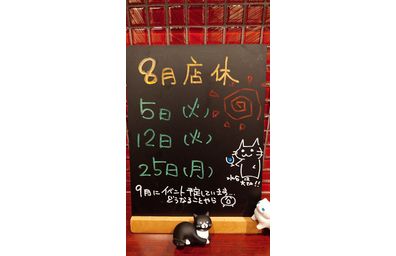 8月店休
5日(火)
12日(火)
25日(月)
9月にイベント予定しています…
どうなることやら